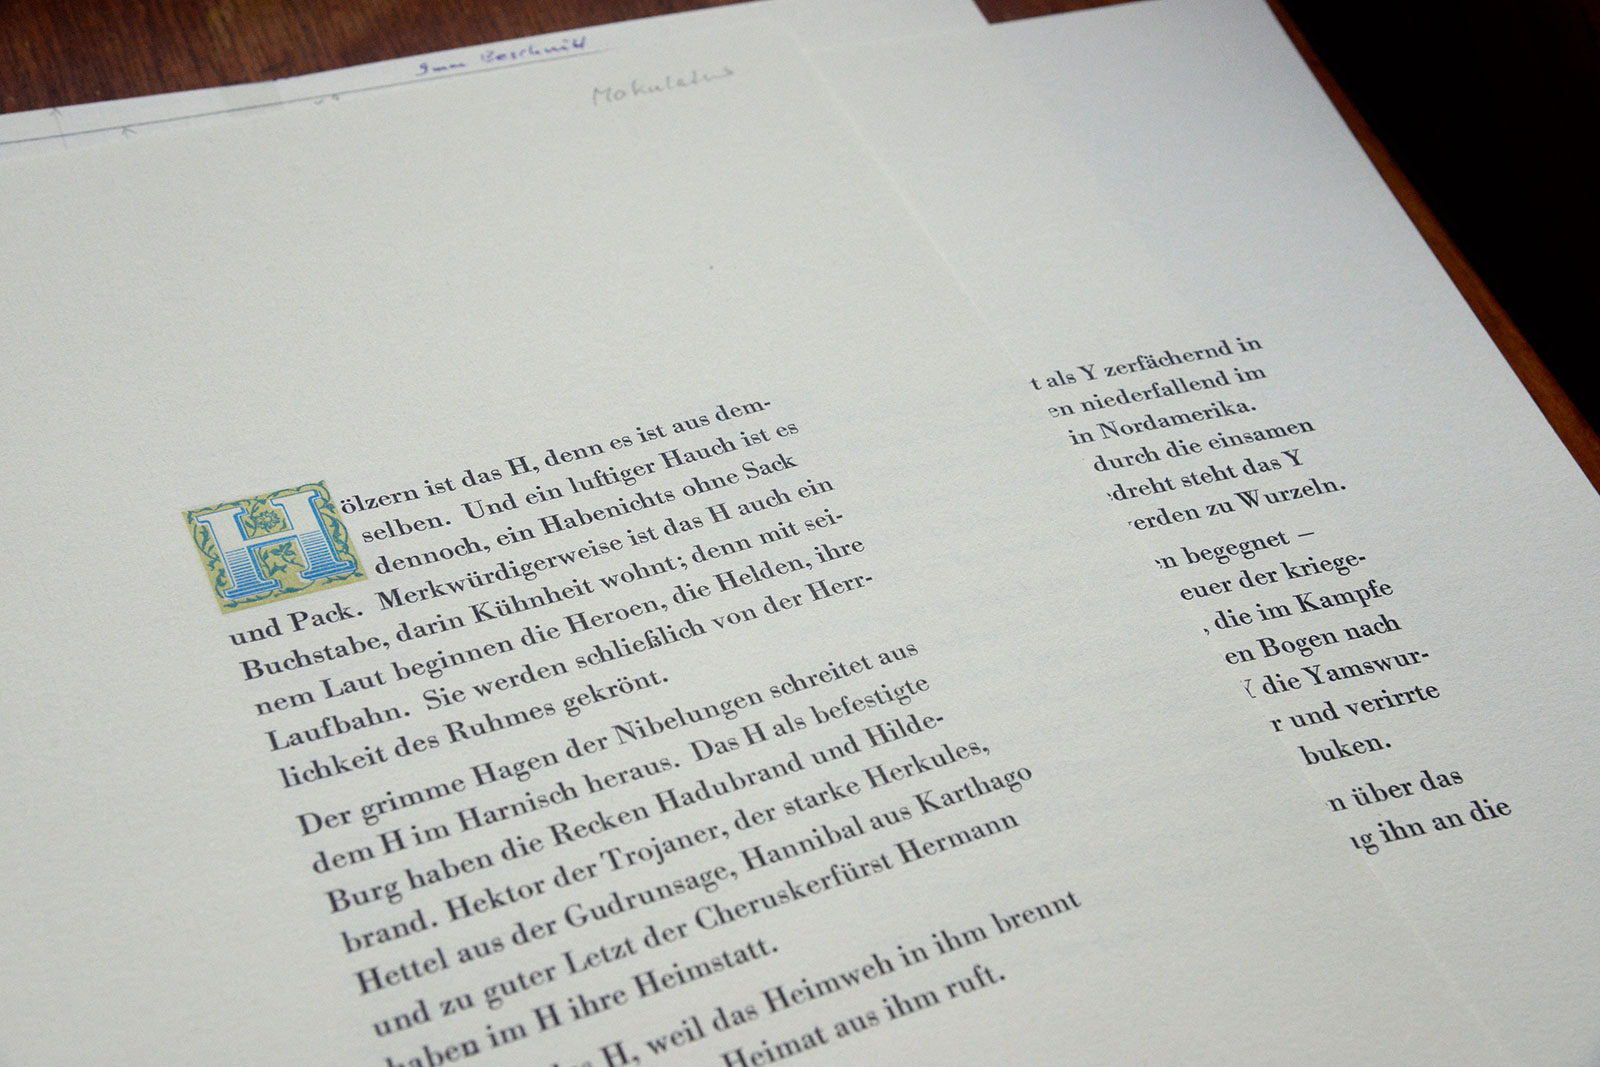 9mm Beschnitt
Makulatur
Hölzern ist das H, denn es ist aus dem-
selben. Und ein luftiger Hauch ist es
dennoch, ein Habenichts ohne Sack
und Pack. Merkwürdigerweise ist das H auch ein
Buchstabe, darin Kühnheit wohnt; denn mit sei-
nem Laut beginnen die Heroen, die Helden, ihre
Laufbahn. Sie werden schließlich von der Herr-
lichkeit des Ruhmes gekrönt.
Der grimme Hagen der Nibelungen schreitet aus
dem H im Harnisch heraus. Das H als befestigte
Burg haben die Recken Hadubrand und Hilde-
brand. Hektor der Trojaner, der starke Herkules,
Hettel aus der Gudrunsage, Hannibal aus Karthago
und zu guter Letzt der Cheruskerfürst Hermann
haben im H ihre Heimstatt.
H, weil das Heimweh in ihm brennt
Heimat aus ihm ruft.
t als Y zerfächernd in
en niederfallend im
in Nordamerika.
durch die einsamen
dreht steht das Y
erden zu Wurzeln.
n begegnet –
euer der kriege-
, die im Kampfe
en Bogen nach
Y die Yamswur-
r und verirrte
buken.
n über das
ug ihn an die